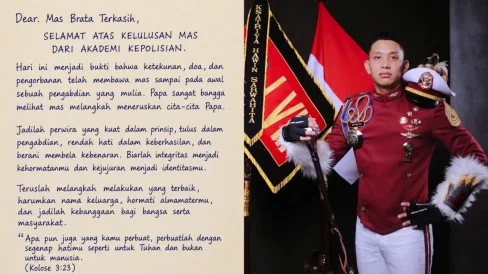 Dear. Mas Brata Terkasih,
SELAMAT ATAS KELULUSAN MAS
DARI AKADEMI KEPOLISIAN.
Hari ini menjadi bukti bahwa ketekunan, doa, dan
pengorbanan telah membawa mas sampai pada awal
sebuah pengabdian yang mulia. Papa sangat bangga
melihat mas melangkah meneruskan cita-cita Papa.
Jadilah perwira yang kuat dalam prinsip, tulus dalam
pengabdian, rendah hati dalam keberhasilan, dan
berani membela kebenaran. Biarlah integritas menjadi
kehormatanmu dan kejujuran menjadi identitasmu.
Teruslah melangkah melakukan yang terbaik,
harumkan nama keluarga, hormati almamatermu,
dan jadilah kebanggaan bagi bangsa serta
masyarakat.
“Apa pun juga yang kamu perbuat, perbuatlah dengan
segenap hatimu seperti untuk Tuhan dan bukan
untuk manusia.
(Kolose 3:23)
KSATRIYA HAWIN SARWAHITA